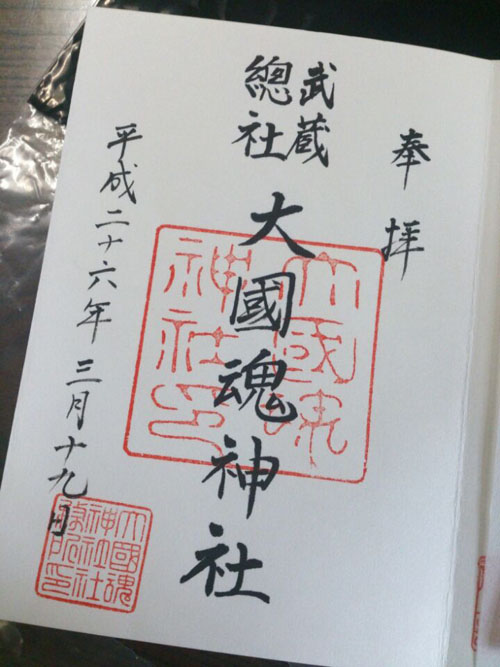 奉拝
武蔵
總社
大國魂神社
平成二十六年三月十九日
大國魂
神社印
大國魂
神社社